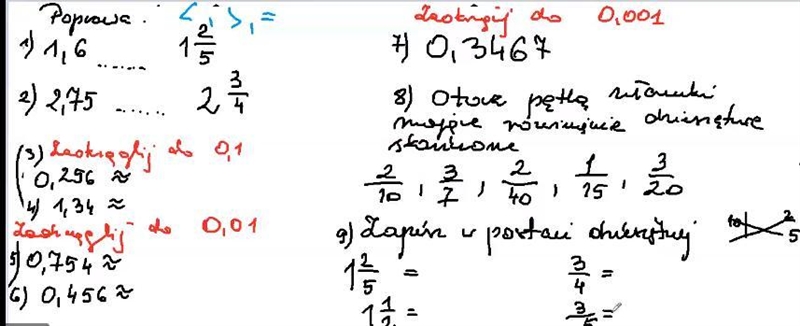 Poprawa: <, >, =
1) 1,6 ...... 1 2/5
2) 2,75 ...... 2 3/4
3) Zaokrąglij do 0,1
0,256 ≈
4) 1,34 ≈
Zaokrąglij do 0,01
5) 0,754 ≈
6) 0,456 ≈
Zaokrąglij do 0,001
7) 0,3467
8) Otocz pętlą ułamki
mające rozwinięcie dziesiętne
skończone
2/10, 3/7, 2/40, 1/15, 3/20
9) Zapisz w postaci dziesiętnej
1 2/5 = 3/4 =
1 1/2 = 3/5 =
10 2
5